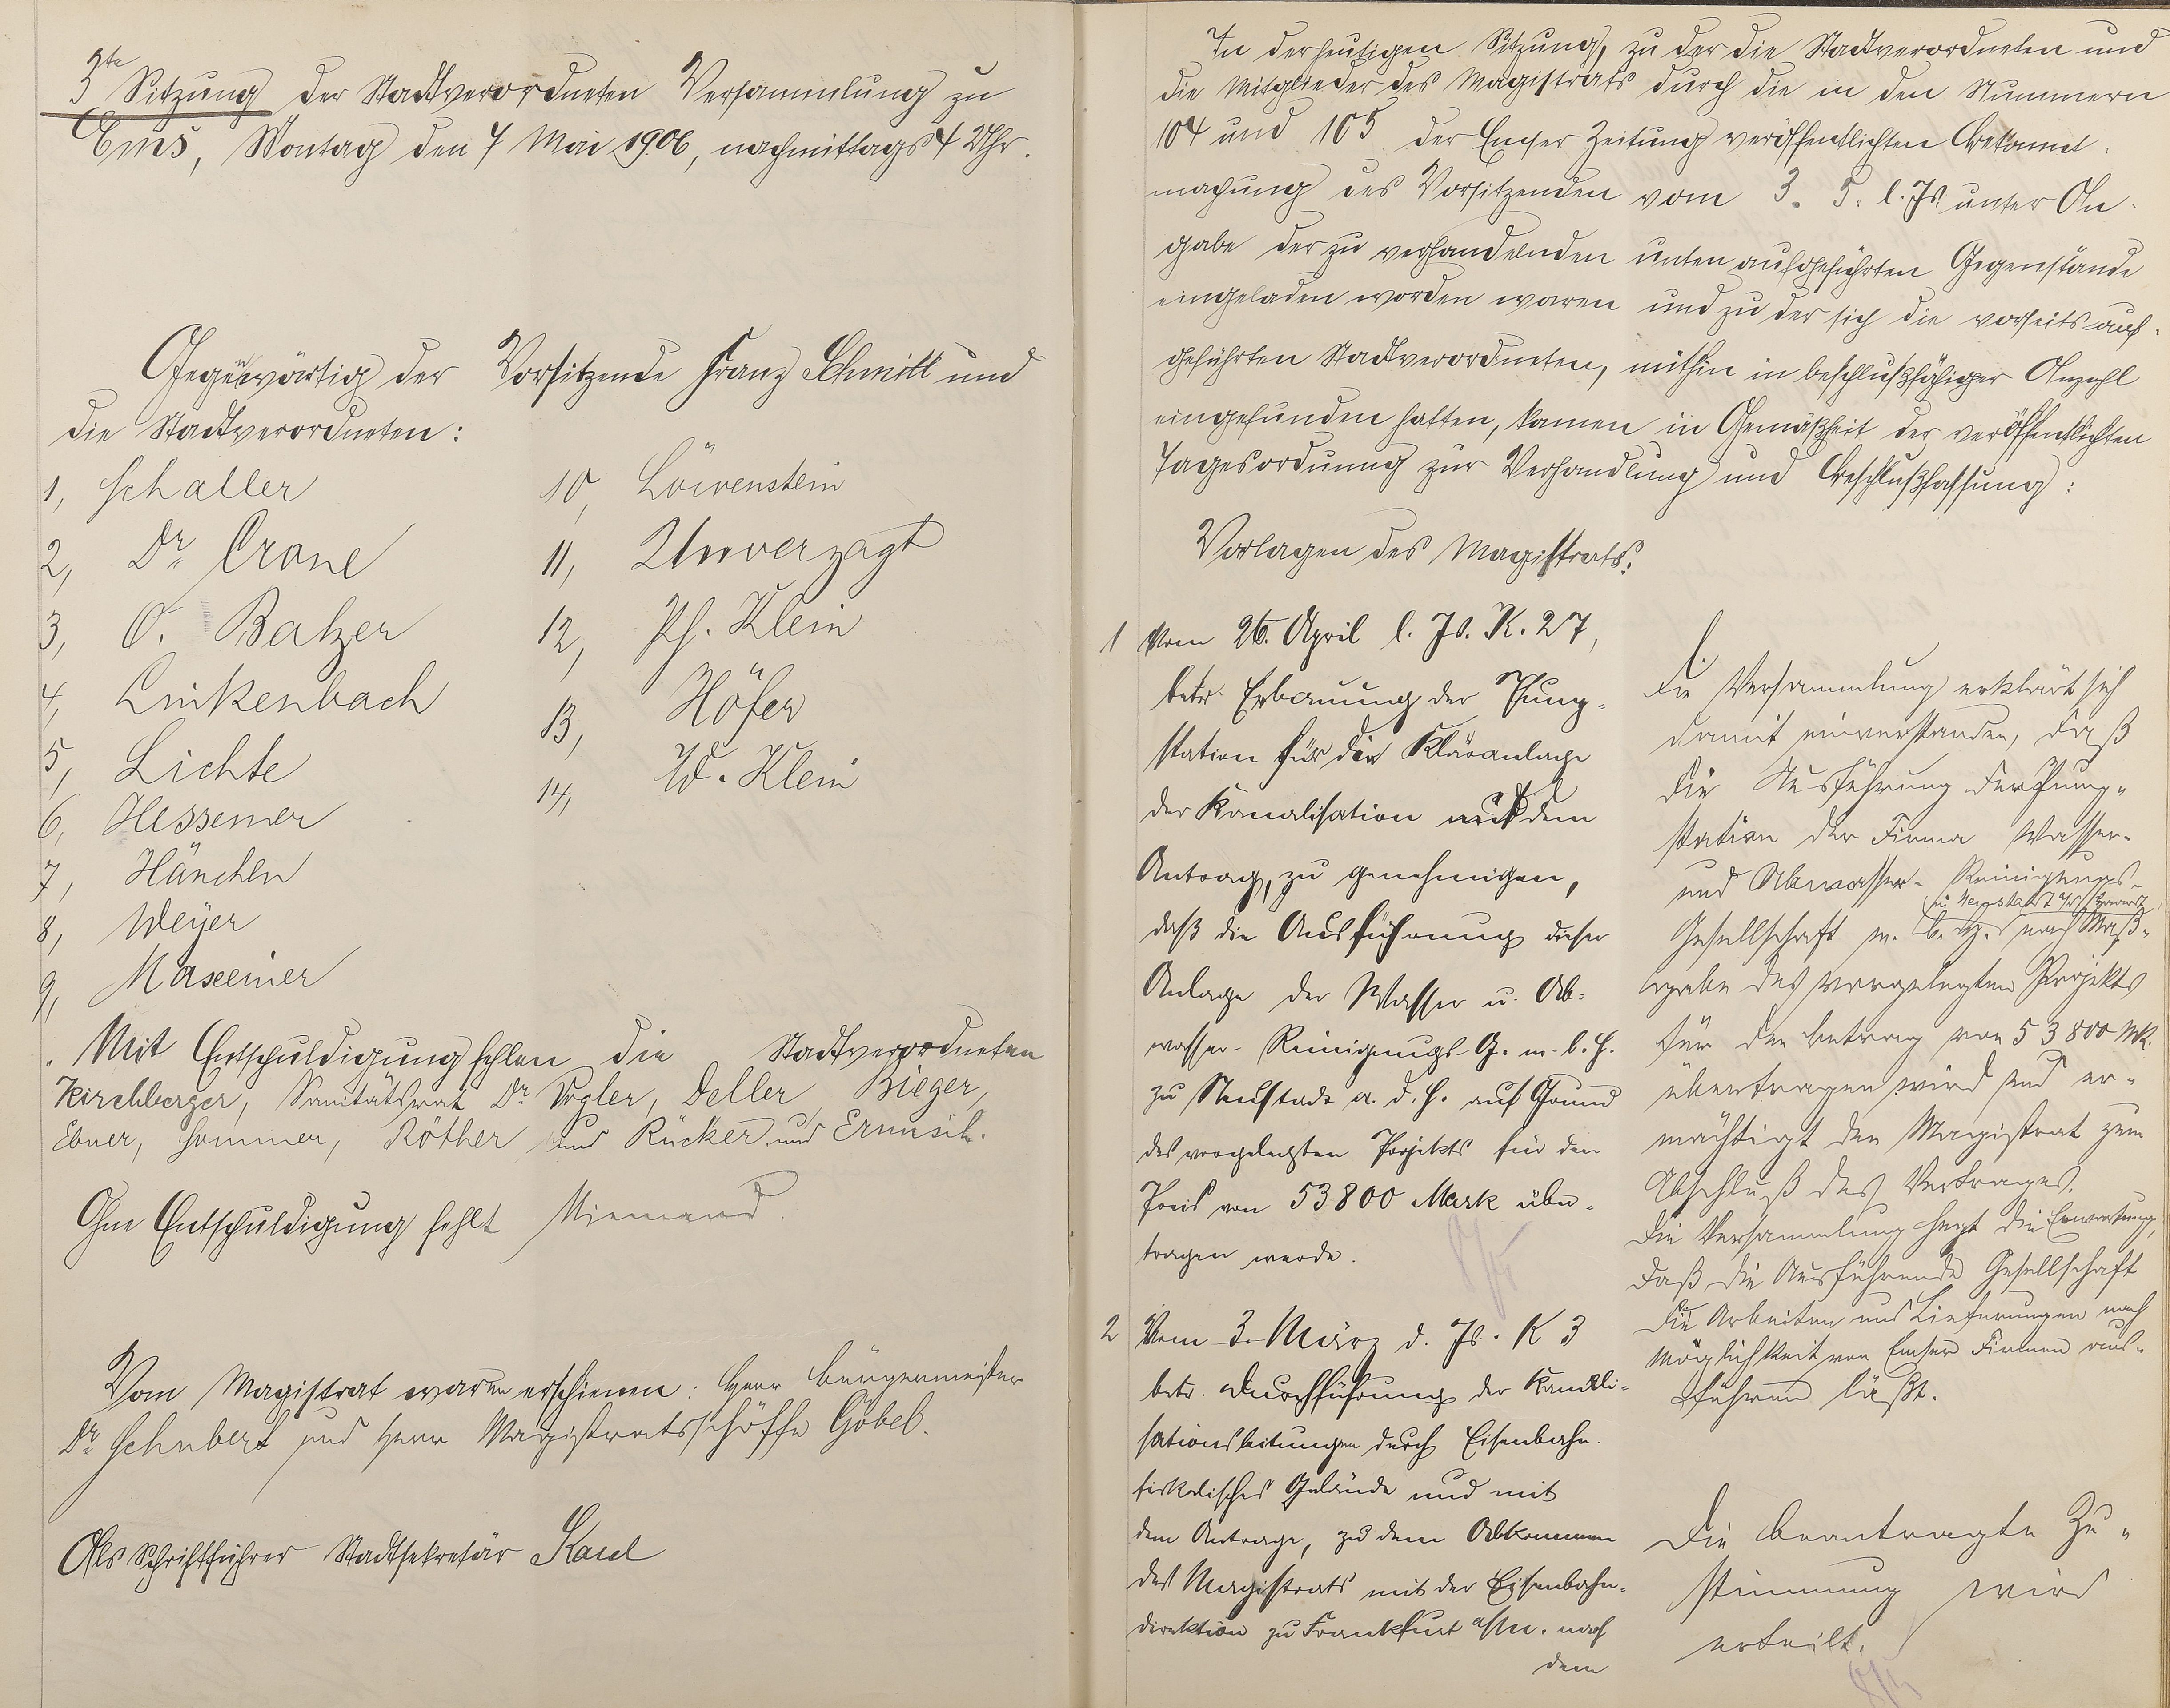 3te Sitzung der Stadtverordneten Versammlung zu
Ems, Montag den 7 Mai 1906, nachmittags 4 Uhr.
Gegenwärtig der Vorsitzende Franz Schmitt und
die Stadtverordneten:
1, Schaller
2, Dr. Crone
3, O. Balzer
4, Linkenbach
5, Lichte
6, Hessemer
7, Hänchen
8, Weyer
9, Maxeiner
10, Löwenstein
11, Unverzagt
12, Ph. Klein
13, Höfer
14, W. Klein
Mit Entschuldigung fehlen die Stadtverordneten
Kirchberger, Sanitätsrat Dr. Vogler, Deller, Bieger,
Ebner, Sommer, Röther und Rücker und Ermisch.
Ohne Entschuldigung fehlt Niemand.
Vom Magistrat waren erschienen: Herr Bürgermeister
Dr. Schubert und Herr Magistratsschöffe Göbel.
Als Schriftführer Stadtsekretär Kaul
In der heutigen Sitzung, zu der die Stadtverordneten und
die Mitglieder des Magistrats durch die in den Nummern
104 und 105 der Emser Zeitung veröffentlichten Bekannt-
machung des Vorsitzenden vom 3. 5. l. Js. unter An-
gabe der zu verhandelnden unten aufgeführten Gegenstände
eingeladen worden waren und zu der sich die vorseits auf-
geführten Stadtverordneten, mithin in beschlußfähiger Anzahl
eingefunden hatten, kamen in Gemäßheit der veröffentlichten
Tagesordnung zur Verhandlung und Beschlußfassung:
Vorlagen des Magistrats:
1 Vom 26. April l. Js. K. 27,
betr. Erbauung der Pump-
station für die Kläranlage
der Kanalisation mit dem
Antrag, zu genehmigen,
daß die Ausführung dieser
Anlage der Wasser u. Ab-
wasser-Reinigungs-G. m. b. H.
zu Neustadt a. d. H. auf Grund
des vorgelegten Projekts für den
Preis von 53800 Mark über-
tragen werde.
8/5
2 Vom 3. März d. Js. K 3
betr. Durchführung der Kanali-
sationsleitungen durch Eisenbahn-
fiskalisches Gelände und mit
dem Antrage, zu dem Abkommen
des Magistrats mit der Eisenbahn-
direktion zu Frankfurt a/M. nach
dem
1.
Die Versammlung erklärt sich
damit einverstanden, daß
die Ausführung der Pump-
station der Firma Wasser-
und Abwasser-Reinigungs-
(in Neustadt a/d Haardt)
Gesellschaft m. b. H. nach Maß-
gabe des vorgelegten Projekts
für den Betrag von 53800 Mk.
übertragen wird und er-
mächtigt den Magistrat zum
Abschluß des Vertrages.
Die Versammlung hegt die Erwartung,
daß die Ausführende Gesellschaft
die Arbeiten und Lieferungen nach
Möglichkeit von Emser Firmen aus-
führen läßt.
Die beantragte Zu-
stimmung wird
erteilt.
8/5